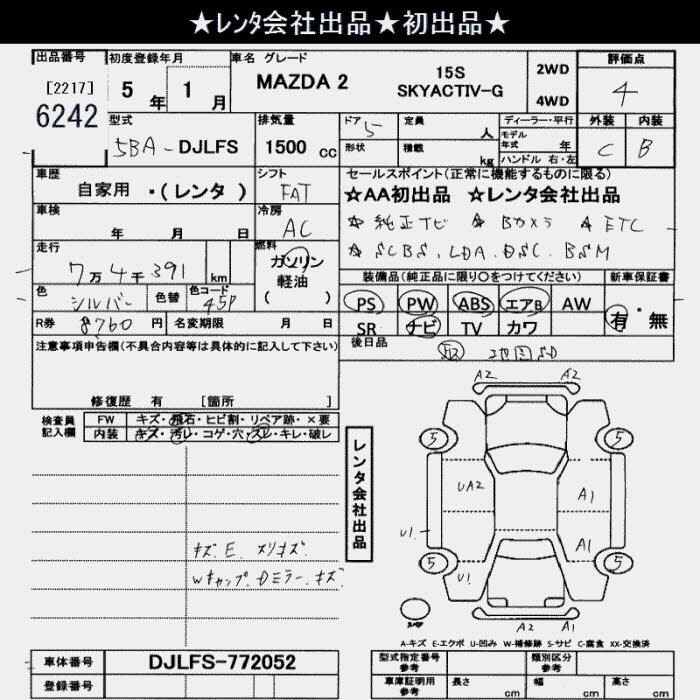 ★レンタ会社出品★初出品★
出品番号 初度登録年月 車名 グレード 評価点
[2217] 6242
5年 1月
MAZDA 2 15S SKYACTIV-G
2WD
4WD
4
型式 5BA-DJLFS
排気量 1500 cc
ドア 5 定員 人
形状 積載 kg
ディーラー・平行
モデル年式 年
ハンドル 右・左
外装 C 内装 B
車歴 自家用 ・(レンタ )
シフト FAT
セールスポイント(正常に機能するものに限る)
☆AA初出品 ☆レンタ会社出品
☆ 純正ナビ ☆ Bカメラ ☆ ETC
☆ SCBS. LDA. DSC. BSM
車検 年 月 日
冷房 AC
走行 7万4千391 km
燃料 ガソリン 軽油 ( )
色 シルバー 色替 色コード 45P
装備品(純正品に限り○をつけてください) 新車保証書
PS PW ABS エアB AW
SR ナビ TV カワ
有・無
R券 8760 円 名変期限 月 日
後日品 地図SD
注意事項申告欄(不具合内容等は具体的に記入して下さい)
修復歴 有 [箇所 ]
検査員記入欄
FW キズ・飛石・ヒビ割・リペア跡・×要
内装 キズ・汚レ・コゲ・穴・スレ・キレ・破レ
レンタ会社出品
キズ. E. スリキズ.
Wキャップ. Dミラー. キズ.
A2 A2
5 5
UA2 A1
U1 A1
5 U1 5
A2 A1
スペア
A-キズ E-エクボ U-凹み W-補修跡 S-サビ C-腐食 XX-交換済
車体番号 DJLFS-772052
登録番号
型式指定番号参考 類別区分参考
車庫証明用参考 長さ cm 幅 cm 高さ cm